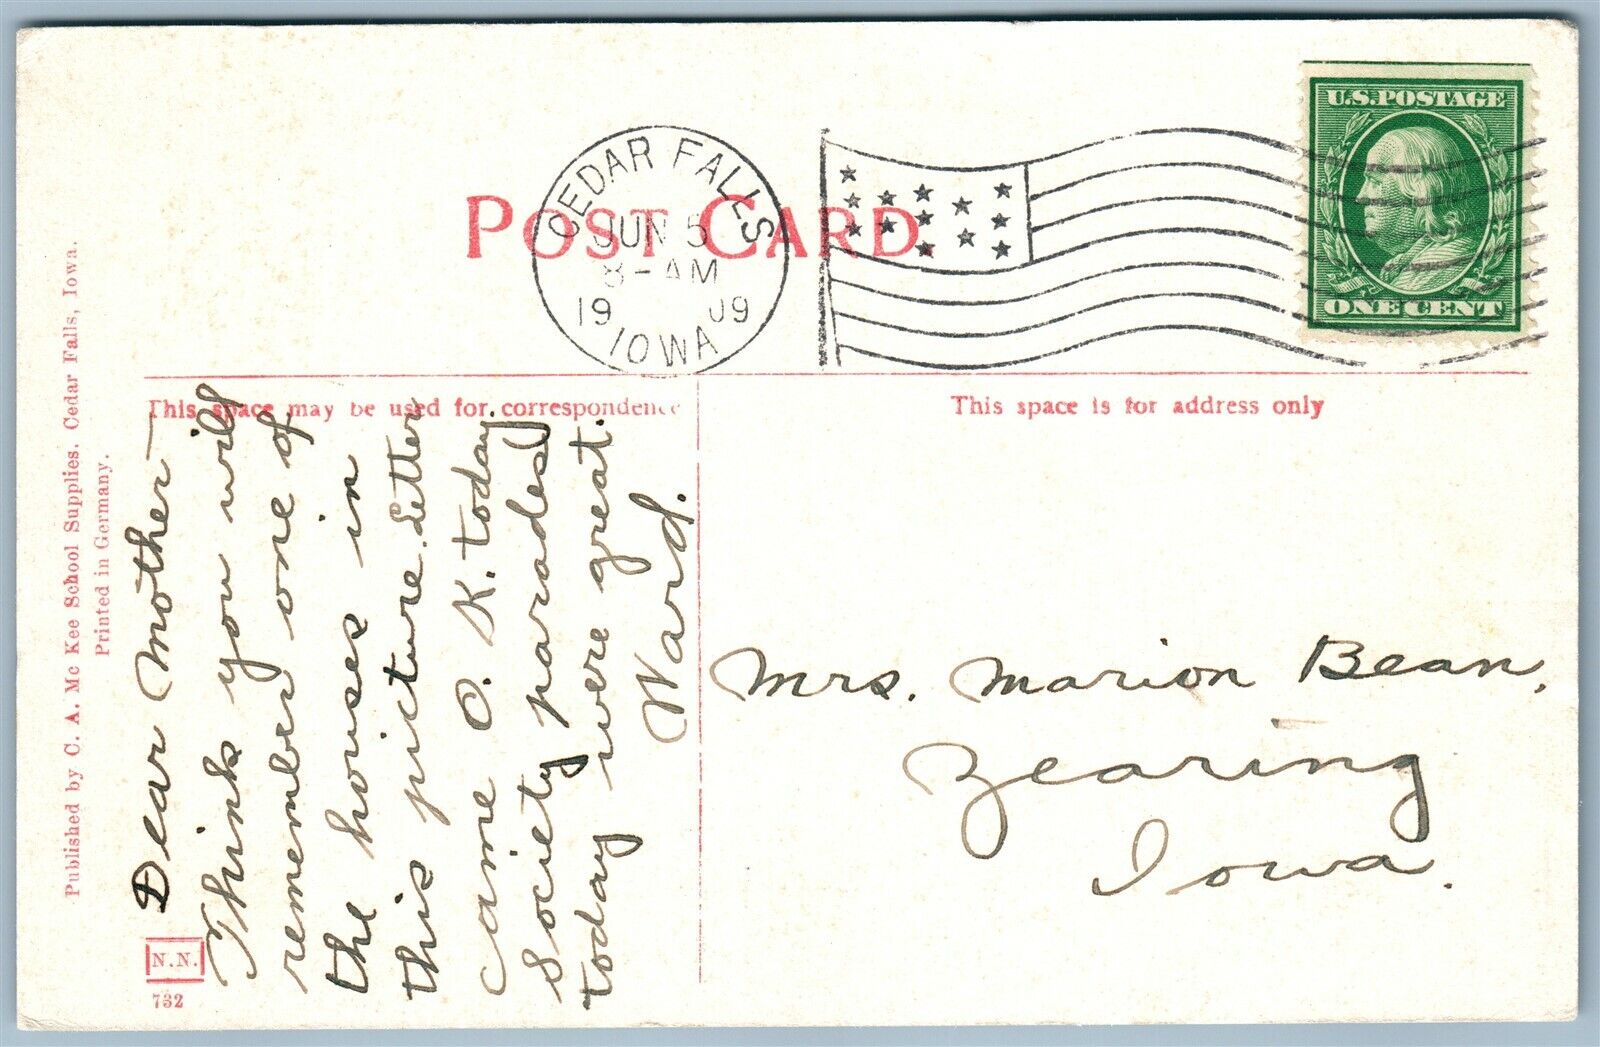 POST CARD
CEDAR FALLS
JUN 5
8-AM
1909
IOWA
U.S. POSTAGE
ONE CENT
This space may be used for correspondence
This space is for address only
Published by C. A. Mc Kee School Supplies. Cedar Falls, Iowa.
Printed in Germany.
N.N.
732
Dear Mother—
Think you will
remember one of
the houses in
this picture. Letter
came O. K. today.
Society parades
today were great.
Ward.
Mrs. Marion Bean,
Zearing
Iowa.